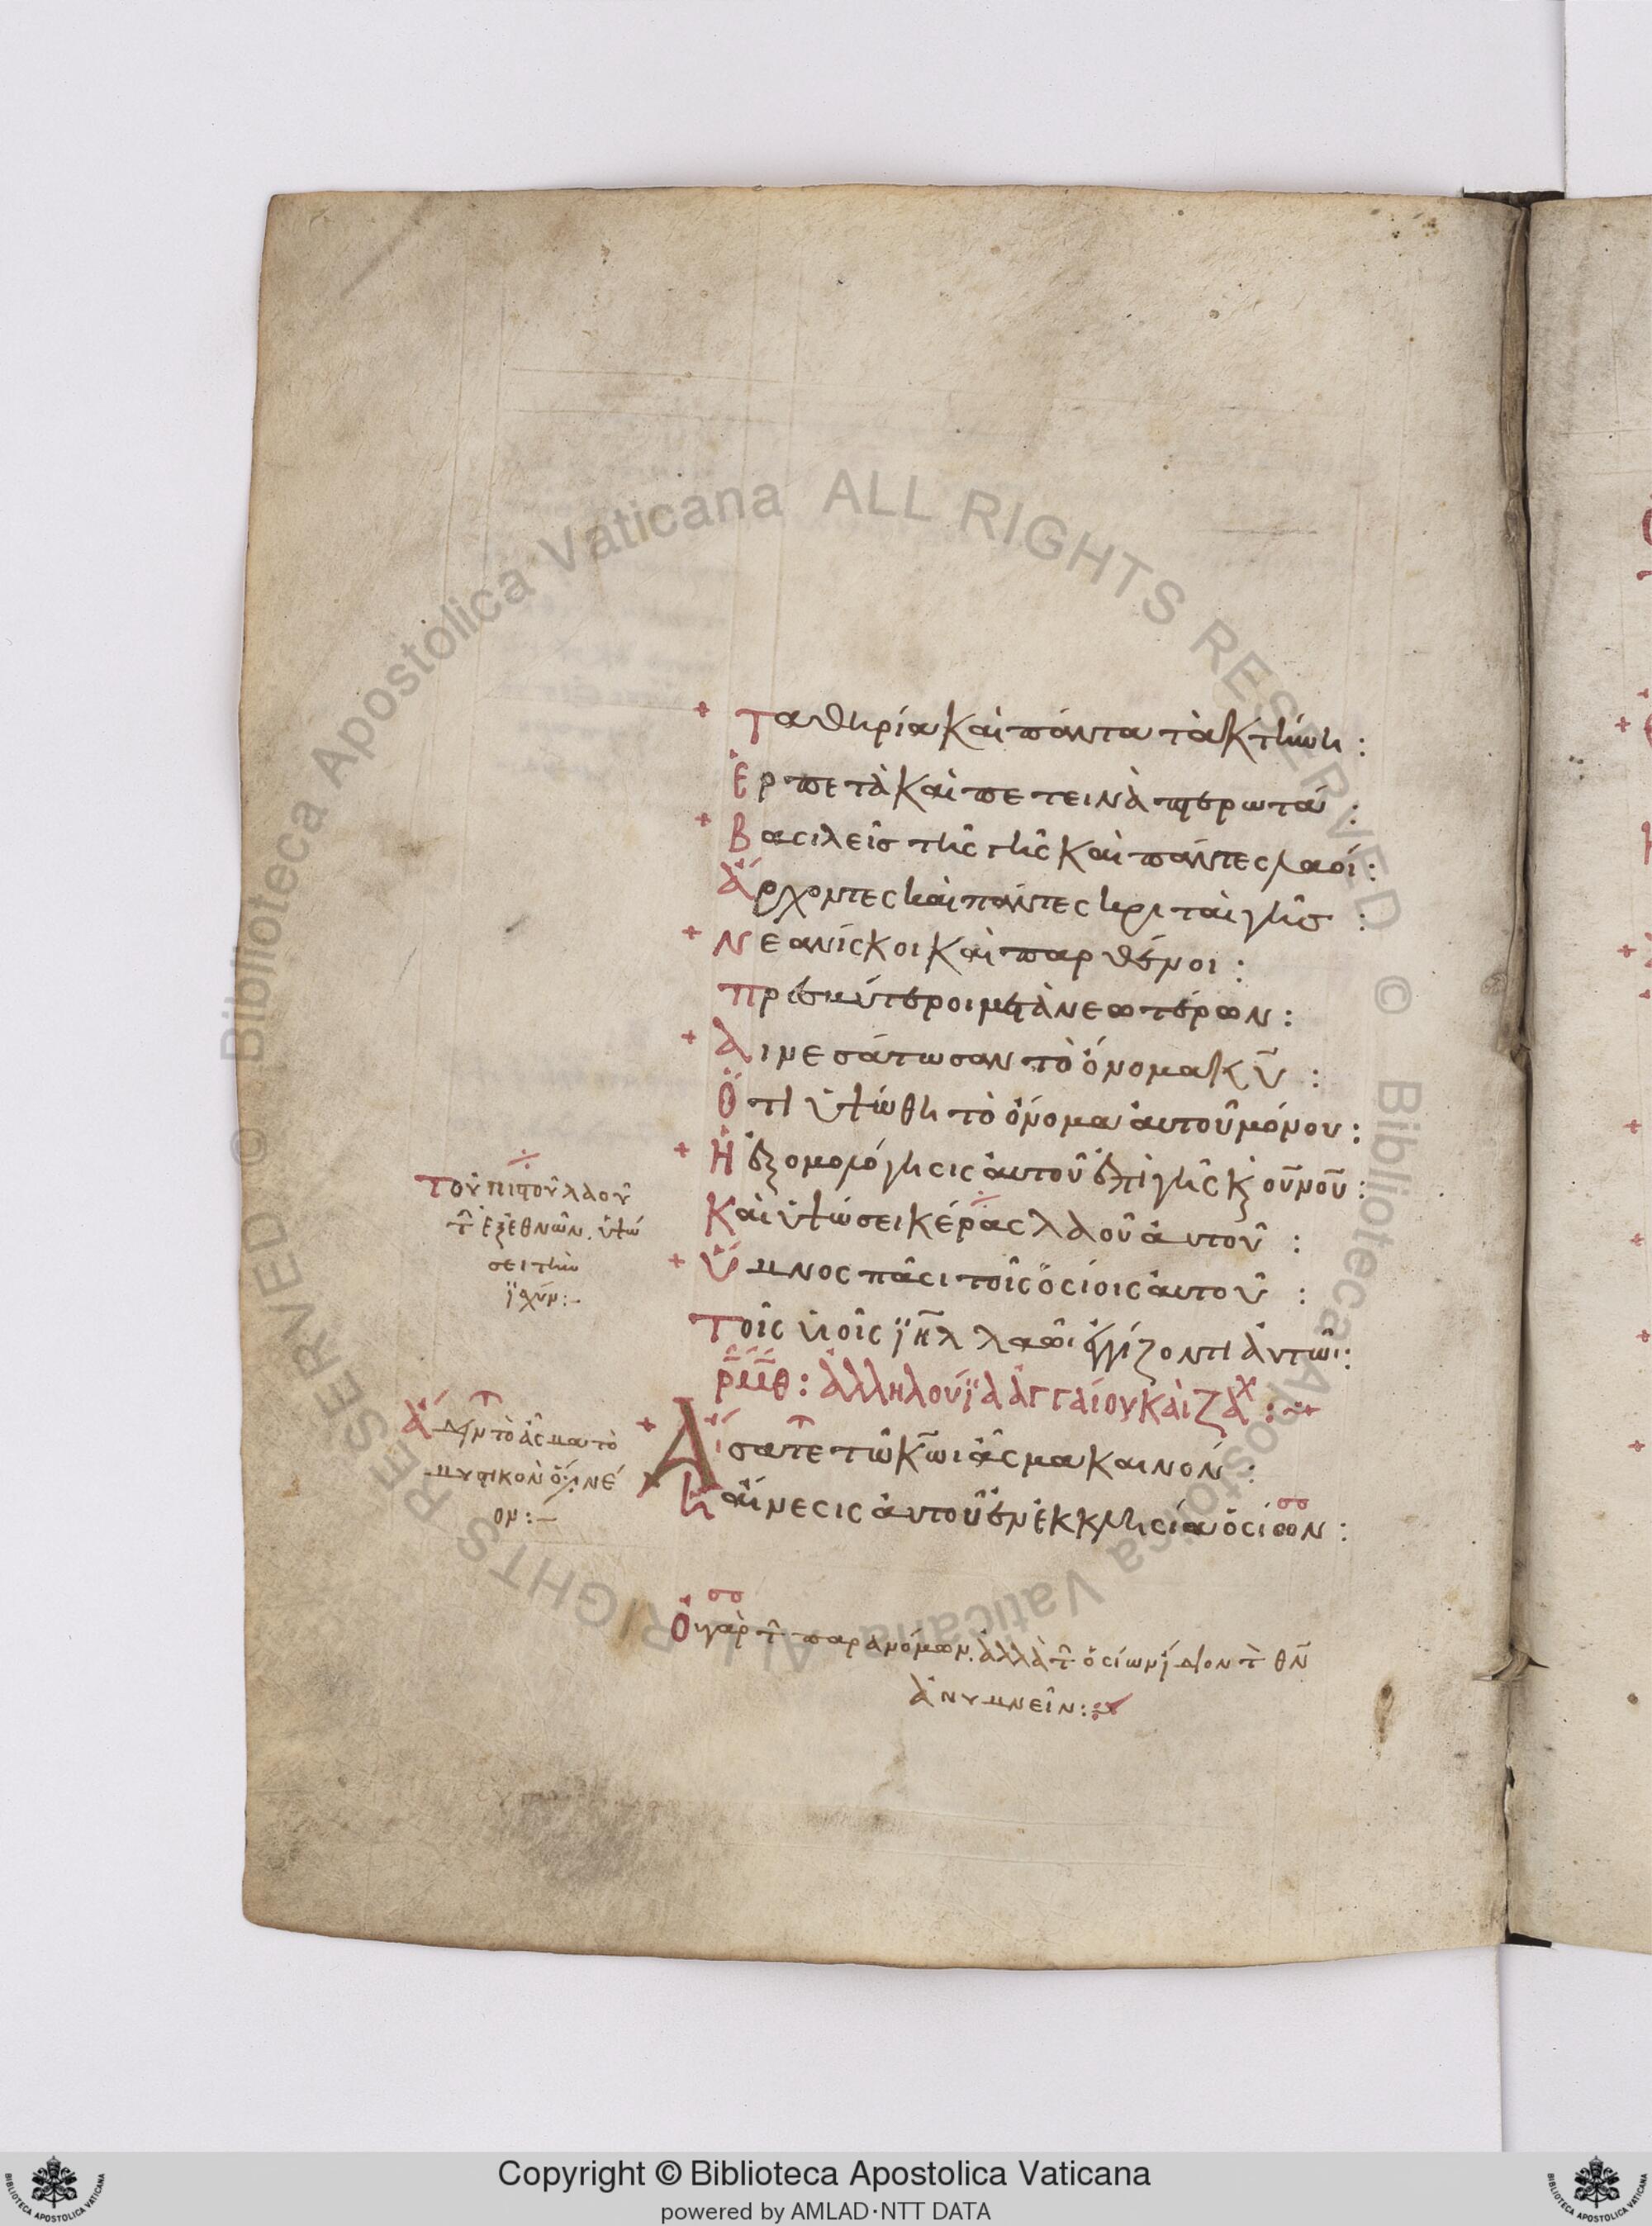 Τὰ θηρία καὶ πάντα τὰ κτήνη :
Ἑρπετὰ καὶ πετεινὰ πτερωτά :
Βασιλεῖσ τῆς γῆς καὶ πάντες λαοί :
Ἄρχοντες καὶ πάντες κριταὶ γῆσ :
Νεανίσκοι καὶ παρθένοι :
Πρεσβύτεροι μετὰ νεωτέρων :
Αἰνεσάτωσαν τὸ ὄνομα κ̅υ̅ :
Ὅτι ὑψώθη τὸ ὄνομα αὐτοῦ μόνου :
Ἡ ἐξομολόγησις αὐτοῦ ἐπὶ γῆς κ ου̅νου̅ :
Καὶ ὑψώσει κέρας λαοῦ αὐτοῦ :
Ὕμνος πᾶσι τοῖς ὁσίοις αὐτοῦ :
Τοῖς υἱοῖς ἰη̅λ λαῶι ἐγγίζοντι αὐτῶι :
ρμθ : ἀλληλούϊα ἀγγαίου καὶ ζαχ :
Ἄισατε τῶ κ̅ω̅ι ἆσμα καινόν :
Ἡ αἴνεσις αὐτοῦ ἐν ἐκκλησία ὁσίων :
Τοῦ πιστοῦ λαοῦ
τ ἐξ ἐθνῶν. ὑψώ
σει τὴν
ἰσχύν :-
τὸ ἆσμα τὸ
νέ
ον :-
Οὐ γὰρ τ παρανόμων. ἀλλὰ τ ὁσίων ἴδιον τ θ̅ν̅
ἀνυμνεῖν :
Copyright © Biblioteca Apostolica Vaticana
powered by AMLAD·NTT DATA
© Biblioteca Apostolica Vaticana ALL RIGHTS RESERVED © Biblioteca Apostolica Vaticana ALL RIGHTS RESERVED